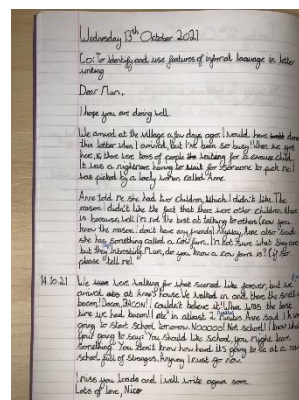 Wednesday 13th October 2021
Co: To identify and use features of informal language in letter
writing
Dear Mum,
I hope you are doing well.
We arrived at the village a few days ago. I would have done
this letter when I arrived, but I've been so busy! When we got
here, there were loads of people waiting for a evacuee child.
It was a nightmare having to wait for someone to pick me! I
was picked by a lovely woman called Anne.
Anne told me she had two children, which I didn't like. The
reason I didn't like the fact that there were other children there
is because, well I'm not the best at talking to others (cau you
know the reason i don't have any friends). Anyway, Anne also said
she has something called a cow farm. I'm not sure what they are
but interesting. Mum, do you know a cow farm is? If so
please tell me!
14.10.21 We were walking for what seemed like forever, but we
arrived at Anne's house. We walked in and there the smell
bacon! Bacon, BACON! I couldn't believe it! When was the last
time we had bacon! I ate in atleast 2 minutes. Anne said I
going to start school tomorrow. NOOOOO! Not school! I know what
your going to say: You should like school, you might learn
something. You don't know how hard it's going to be at a new
school full of strangers. Anyway I must go now.
I miss you loads and I will write again soon
Lots of love, Nico